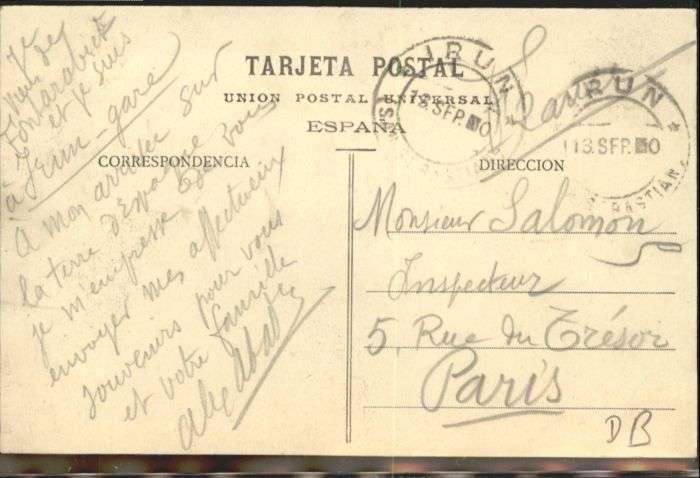 TARJETA POSTAL
UNION POSTAL UNIVERSAL
ESPAÑA
CORRESPONDENCIA
DIRECCION
IRUN
13 SEP 0
IRUN
13 SEP 0
Je
viens de
Fontarabie
et je suis
à Irun-gare
A mon arrivée sur
la terre d'espagne
je m'empresse de vous
envoyer mes affectueux
souvenirs pour vous
et votre famille
Monsieur Salomon
Inspecteur
5, Rue du Trésor
Paris
DB